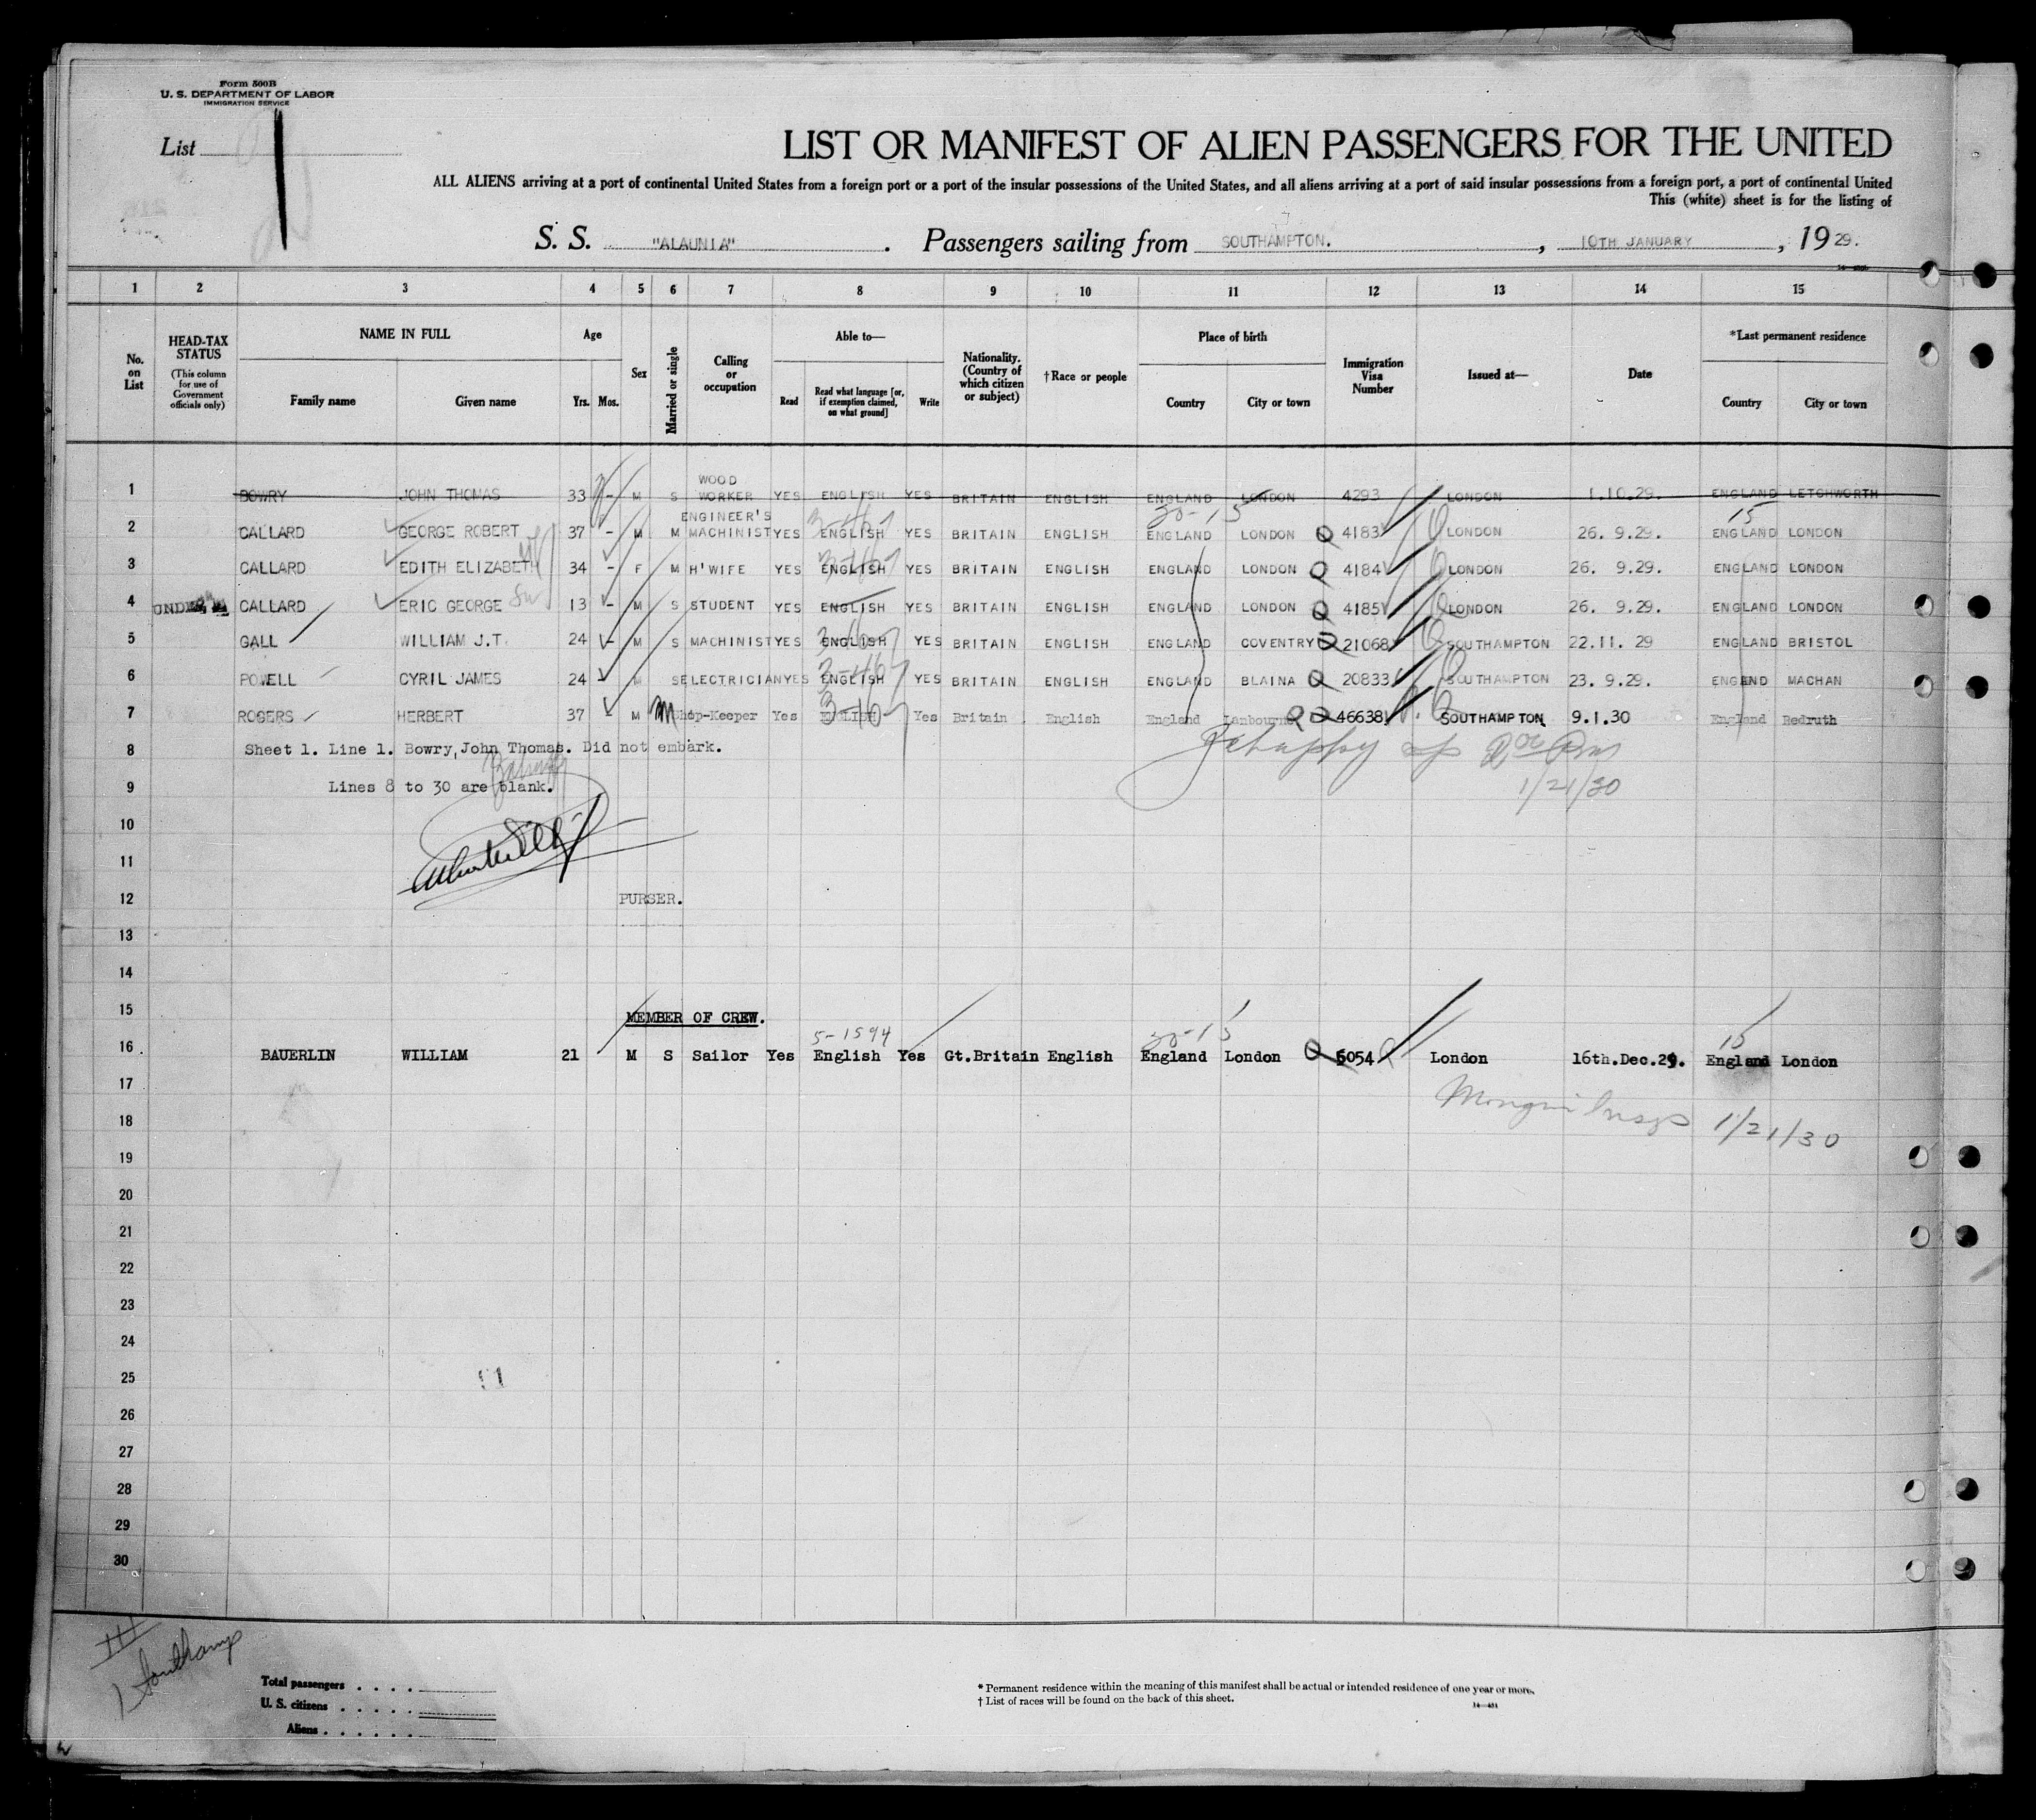 Form 500B
U. S. DEPARTMENT OF LABOR
IMMIGRATION SERVICE
List
LIST OR MANIFEST OF ALIEN PASSENGERS FOR THE UNITED
ALL ALIENS arriving at a port of continental United States from a foreign port or a port of the insular possessions of the United States, and all aliens arriving at a port of said insular possessions from a foreign port, a port of continental United
This (white) sheet is for the listing of
S. S. "ALAUNIA". Passengers sailing from SOUTHAMPTON., 10TH JANUARY, 1929.
1 2 3 4 5 6 7 8 9 10 11 12 13 14 15
No. on List
HEAD-TAX STATUS (This column for use of Government officials only)
NAME IN FULL
Family name Given name
Age
Yrs. Mos.
Sex
Married or single
Calling or occupation
Able to—
Read Read what language [or, if exemption claimed, on what ground] Write
Nationality. (Country of which citizen or subject)
†Race or people
Place of birth
Country City or town
Immigration Visa Number
Issued at—
Date
*Last permanent residence
Country City or town
1 BOWRY JOHN THOMAS 33 - M S WOOD WORKER YES ENGLISH YES BRITAIN ENGLISH ENGLAND LONDON 4293 LONDON 1.10.29. ENGLAND LETCHWORTH
30-15 15
2 CALLARD GEORGE ROBERT 37 - M M ENGINEER'S MACHINIST YES ENGLISH YES BRITAIN ENGLISH ENGLAND LONDON 4183 LONDON 26. 9.29. ENGLAND LONDON
3 CALLARD EDITH ELIZABETH 34 - F M H'WIFE YES ENGLISH YES BRITAIN ENGLISH ENGLAND LONDON 4184 LONDON 26. 9.29. ENGLAND LONDON
4 UNDER CALLARD ERIC GEORGE 13 - M S STUDENT YES ENGLISH YES BRITAIN ENGLISH ENGLAND LONDON 4185 LONDON 26. 9.29. ENGLAND LONDON
5 GALL WILLIAM J.T. 24 - M S MACHINIST YES ENGLISH YES BRITAIN ENGLISH ENGLAND COVENTRY 21068 SOUTHAMPTON 22.11. 29 ENGLAND BRISTOL
6 POWELL CYRIL JAMES 24 M S ELECTRICIAN YES ENGLISH YES BRITAIN ENGLISH ENGLAND BLAINA 20833 SOUTHAMPTON 23. 9.29. ENGLAND MACHAN
7 ROGERS HERBERT 37 - M M Shop-Keeper Yes ENGLISH Yes Britain English England 46638 SOUTHAMPTON 9.1.30 England Redruth
8 Sheet 1. Line 1. Bowry, John Thomas. Did not embark.
9 Lines 8 to 30 are blank.
1/21/30
10
11
12 PURSER.
13
14
15 MEMBER OF CREW.
5-1594 30-15 15
16 BAUERLIN WILLIAM 21 M S Sailor Yes English Yes Gt.Britain English England London 6054 London 16th.Dec.29. England London
17
18 1/21/30
19
20
21
22
23
24
25
26
27
28
29
30
III
1 Southamp
Total passengers . . . .
U. S. citizens . . . . .
Aliens . . . . . .
* Permanent residence within the meaning of this manifest shall be actual or intended residence of one year or more.
† List of races will be found on the back of this sheet.